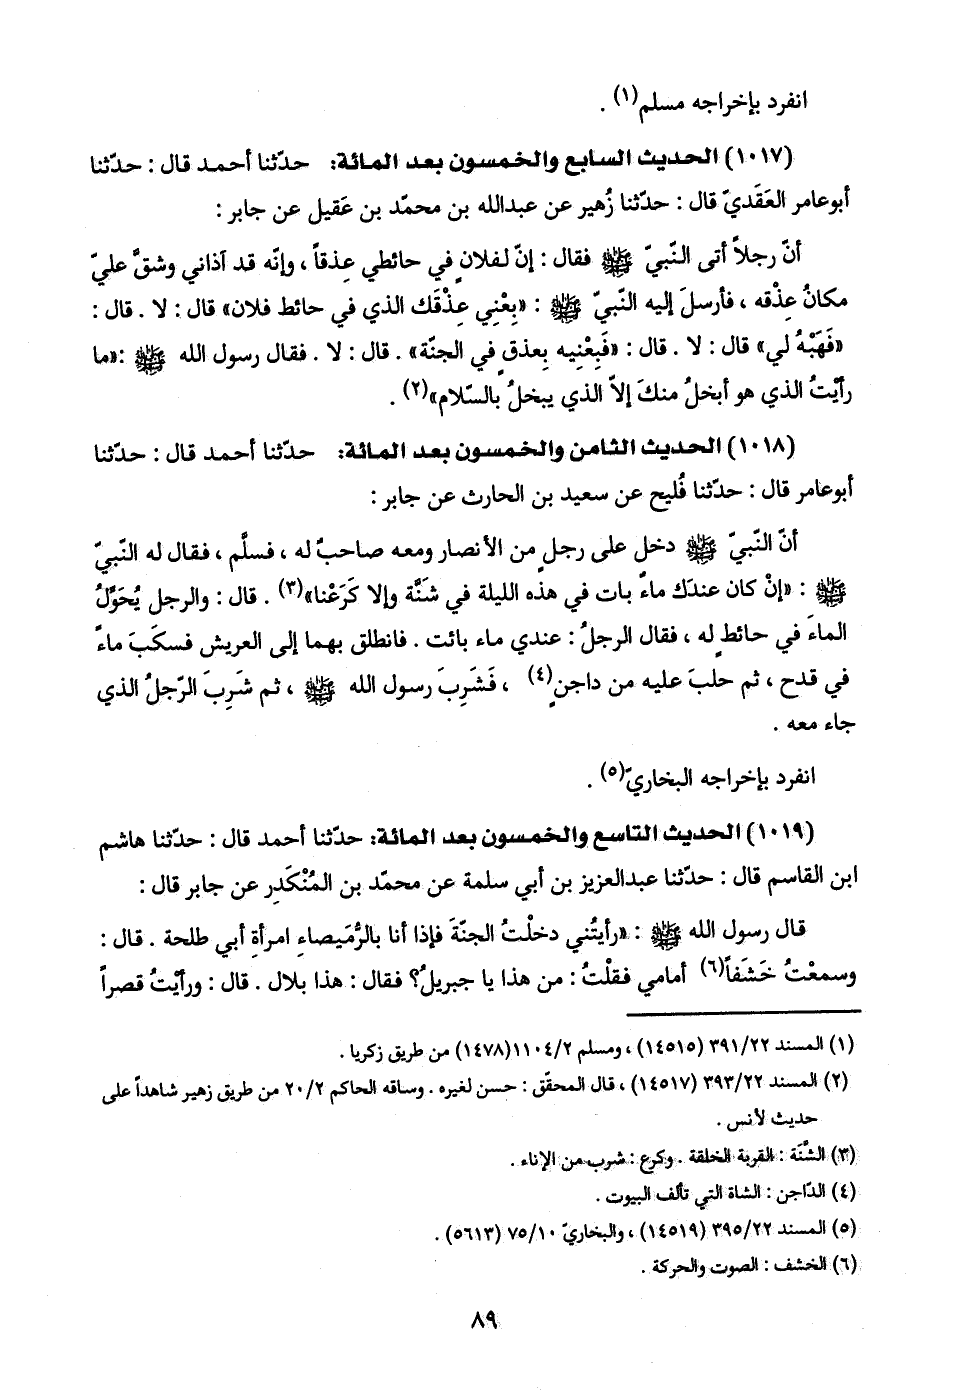 انفرد بإخراجه مسلم(١) .
(١٠١٧) الحديث السابع والخمسون بعد المائة: حدّثنا أحمد قال : حدّثنا
أبوعامر العَقَديّ قال : حدّثنا زُهير عن عبدالله بن محمّد بن عَقيل عن جابر :
أنّ رجلاً أتى النّبيّ ﷺ فقال : إنّ لفلانٍ في حائطي عِذقاً ، وإنّه قد آذاني وشقَّ عليّ
مكانُ عذْقه ، فأرسلَ إليه النّبيّ ﷺ : «بِعْنِي عِذْقَك الذي في حائط فلان» قال : لا . قال :
«فَهَبْهُ لي» قال : لا . قال : «فَبِعْنِيه بِعذقٍ في الجنّة» . قال : لا . فقال رسول الله ﷺ :«ما
رأيْتُ الذي هو أبخلُ منكَ إلاّ الذي يبخلُ بالسّلام»(٢) .
(١٠١٨) الحديث الثامن والخمسون بعد المائة: حدّثنا أحمد قال : حدّثنا
أبوعامر قال : حدّثنا فُليح عن سعيد بن الحارث عن جابر :
أنّ النّبيّ ﷺ دخل على رجلٍ من الأنصار ومعه صاحبٌ له ، فسلَّم ، فقال له النّبيّ
ﷺ : «إنْ كان عندَك ماءً بات في هذه الليلة في شَنَّة وإلا كَرَعْنا»(٣) . قال : والرجل يُحَوِّلُ
الماءَ في حائطٍ له ، فقال الرجلُ : عندي ماء بائت . فانطلق بهما إلى العريش فسكَبَ ماءً
في قدح ، ثم حلبَ عليه من داجنٍ(٤) ، فَشَرِبَ رسول الله ﷺ ، ثم شَرِبَ الرّجلُ الذي
جاء معه .
انفرد بإخراجه البخاريّ(٥) .
(١٠١٩) الحديث التاسع والخمسون بعد المائة: حدّثنا أحمد قال : حدّثنا هاشم
ابن القاسم قال : حدّثنا عبدالعزيز بن أبي سلمة عن محمّد بن المُنْكَدِر عن جابر قال :
قال رسول الله ﷺ : «رأيتُني دخلْتُ الجنّةَ فإذا أنا بالرُّمَيصاءِ امرأةِ أبي طلحة . قال :
وسمعْتُ خَشَفاً(٦) أمامي فقلْتُ : من هذا يا جبريلُ؟ فقال : هذا بلال . قال : ورأيْتُ قصراً
(١) المسند ٣٩١/٢٢ (١٤٥١٥) ، ومسلم ١١٠٤/٢(١٤٧٨) من طريق زكريا .
(٢) المسند ٣٩٣/٢٢ (١٤٥١٧) ، قال المحقّق : حسن لغيره . وساقه الحاكم ٢٠/٢ من طريق زهير شاهداً على
حديث لأنس .
(٣) الشّنّة : القربة الخلقة . وكرع : شرب من الإناء .
(٤) الدّاجن : الشاة التي تألف البيوت .
(٥) المسند ٣٩٥/٢٢ (١٤٥١٩) ، والبخاريّ ٧٥/١٠ (٥٦١٣) .
(٦) الخشف : الصوت والحركة .
٨٩